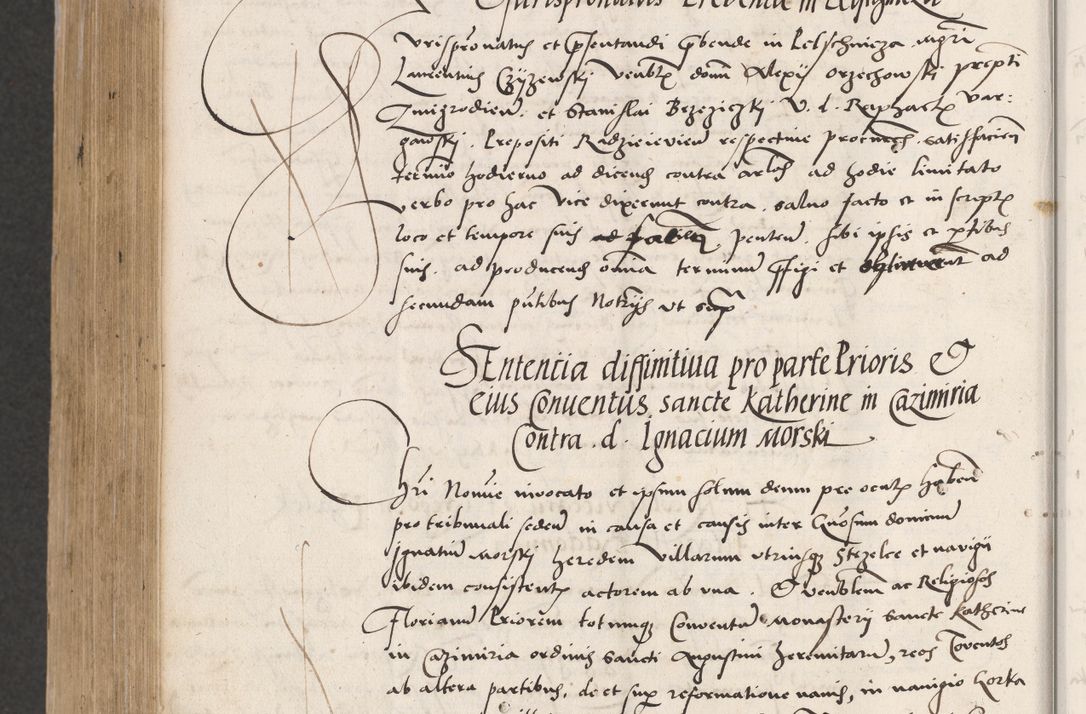 Jurispronatus et psentandi pbende in Pelschnicza mgri
Laurentius Czyzewsky venblx domi Alexij orzechowski prepti
Zmigrodien et Stanislai Bezeziczky V. d. Raphaelx Var:
gawsky. Prepositi Radzieievien respective procures. satisfacien
termio hodierno ad dicend contra arlos ad hodie limitato
verbo pro hac vice dixerunt contra. salvo facto et in scriptx
loco et tempore suis penten sibi ipsis et ptibus
suis. ad producend omia terminum pfigi et ad
secundam pntibus Notrijs ut sup
SEntencia diffinitiva pro parte Prioris et
eius Conventus sancte Katherine in Cazimiria
Contra. d. Ignacium Morski
Chri Nomie invocato et ipsum solum deum pre oculx haben
pro tribunali seden in causa et causis inter Gnosum dominum
Ignatiu Morsky heredem villarum utriusq Stezelce et navigii
ibidem consistentx actorem ab una. Et venblem ac Religiosos
Florianu Priorem totumq Conventu Monastery Sancte Katherine
in Cazimiria ordinis Sancti Augustini heremitaru, reos Conventos
ab altera partibus, de et sup reformatione navis, in navigio Gorka